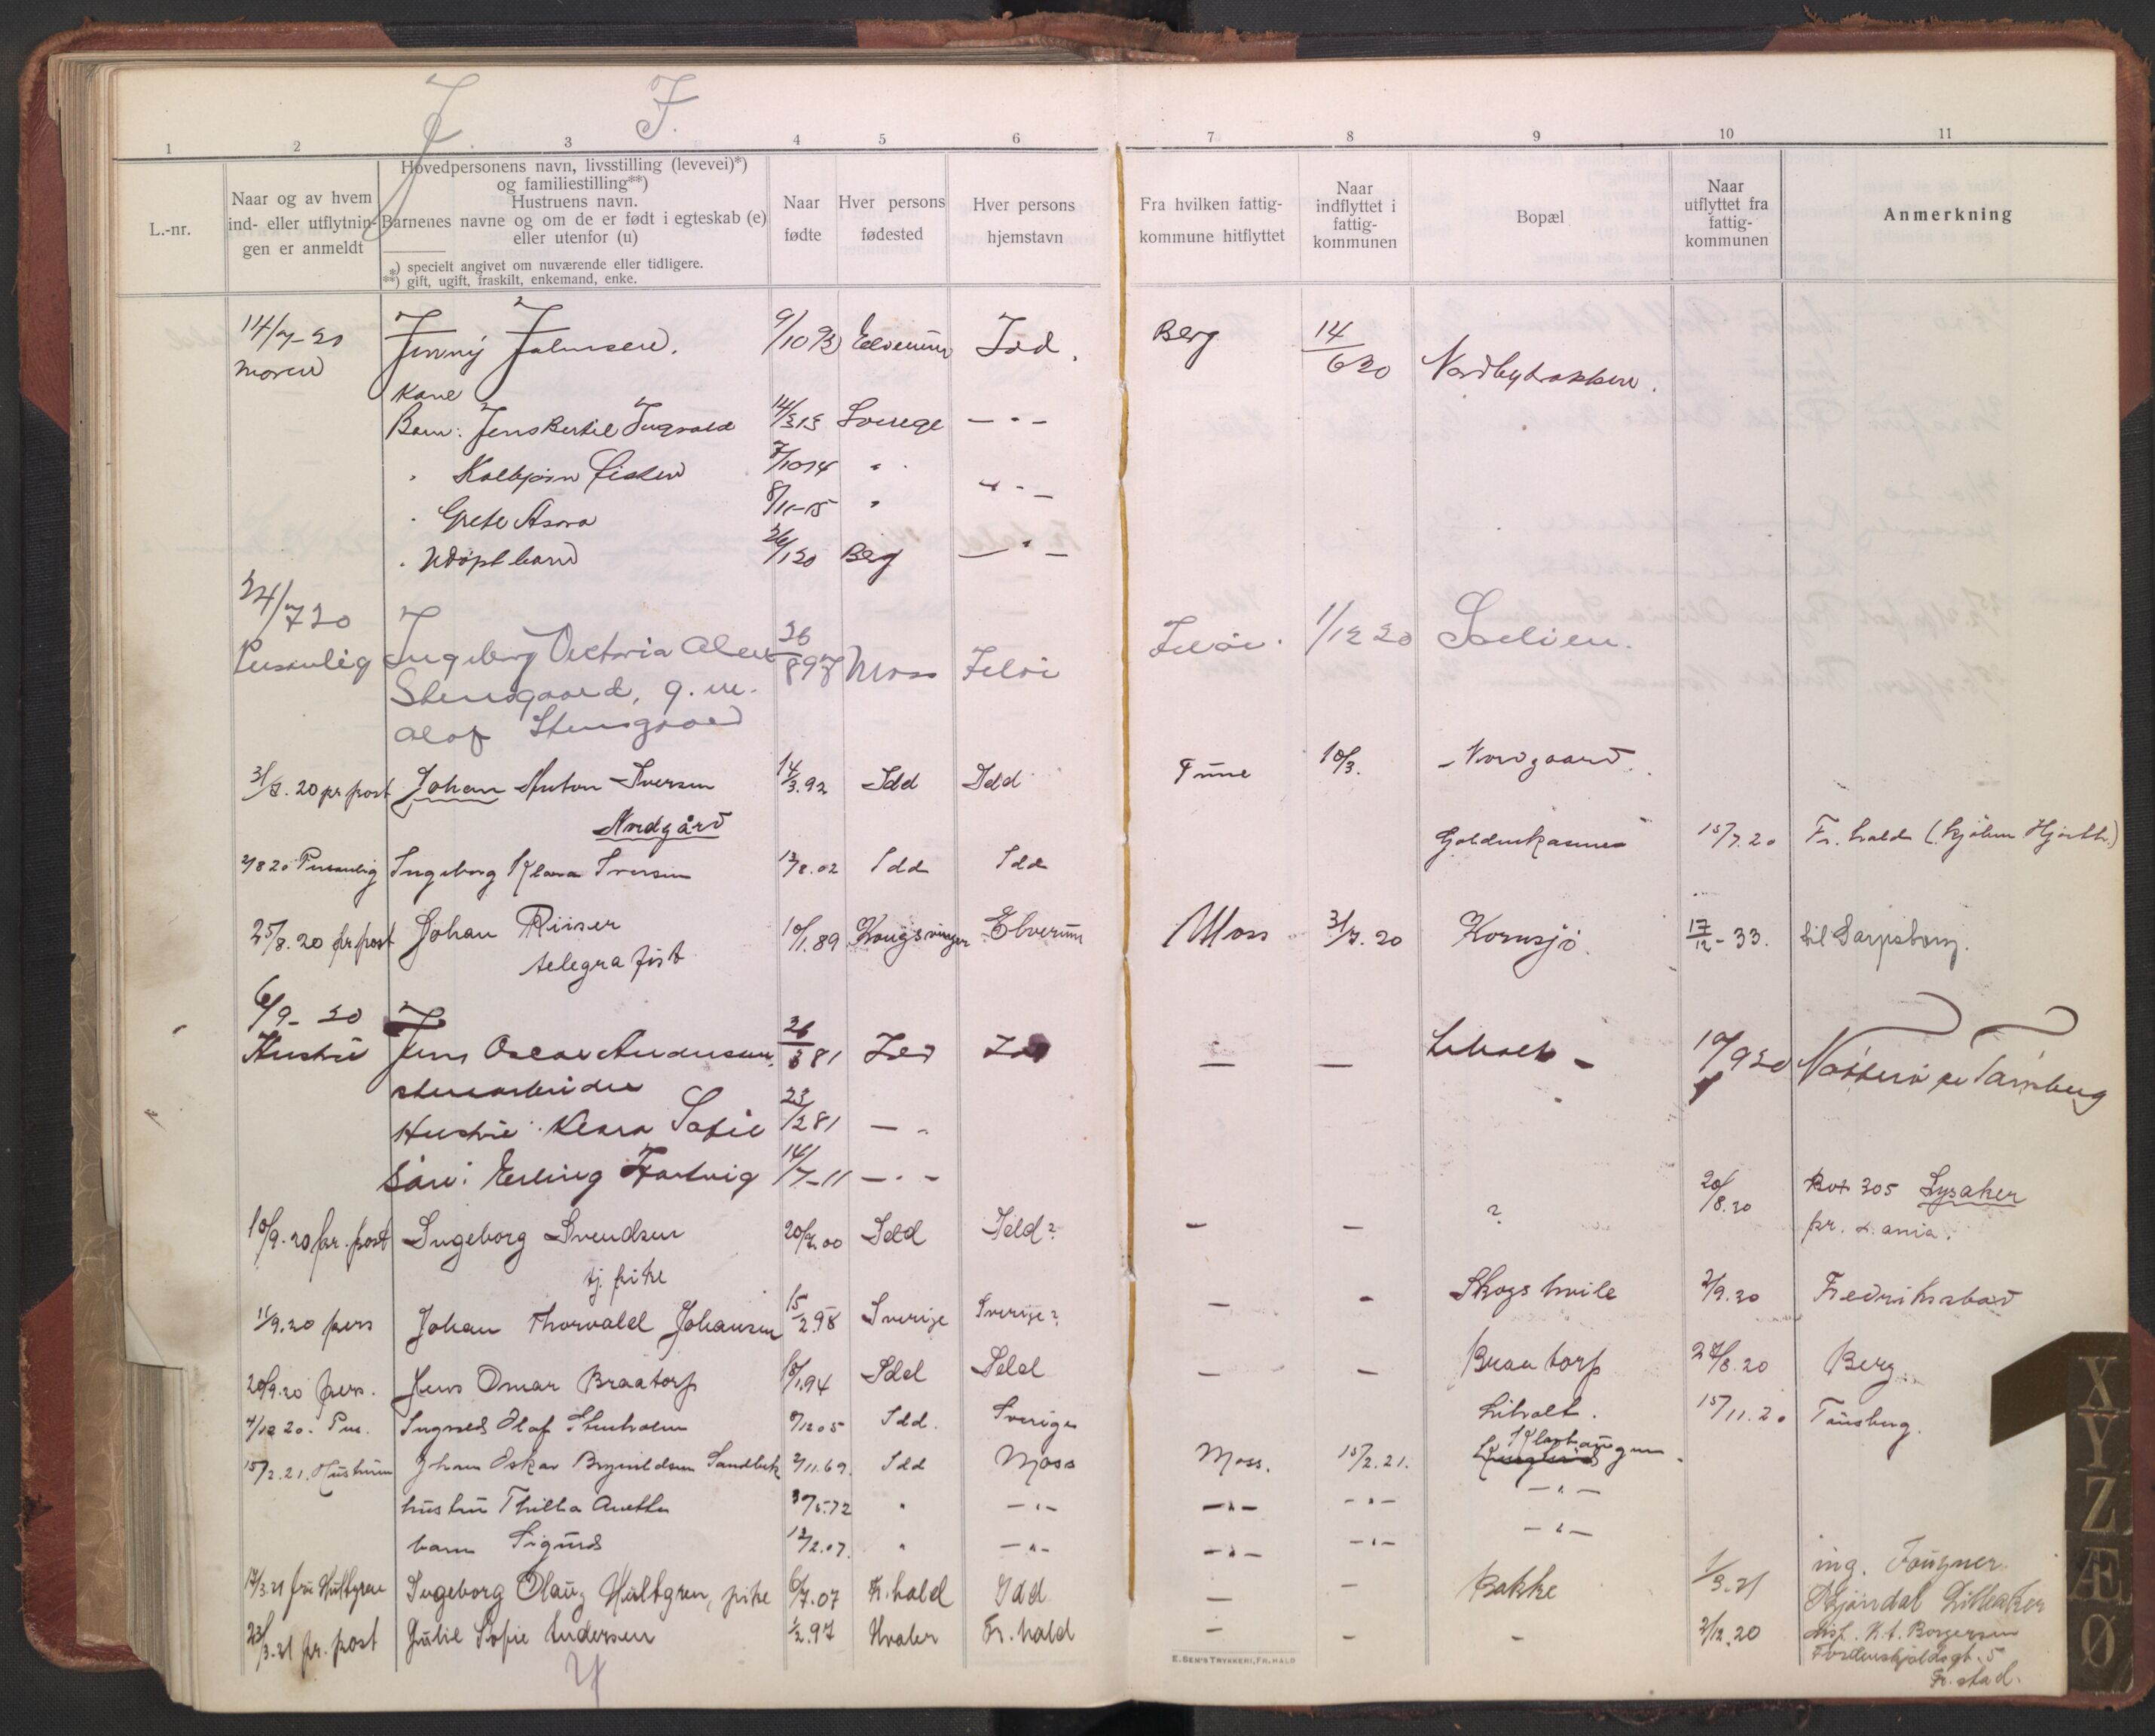 J J.
1 2 3 4 5 6 7 8 9 10 11
L.-nr.
Naar og av hvem
ind- eller utflytnin-
gen er anmeldt
Hovedpersonens navn, livsstilling (levevei)*)
og familiestilling**)
Hustruens navn.
Barnenes navne og om de er født i egteskab (e)
eller utenfor (u)
*) specielt angivet om nuværende eller tidligere.
**) gift, ugift, fraskilt, enkemand, enke.
Naar
fødte
Hver persons
fødested
Hver persons
hjemstavn
Fra hvilken fattig-
kommune hitflyttet
Naar
indflyttet i
fattig-
kommunen
Bopæl
Naar
utflyttet fra
fattig-
kommunen
Anmerkning
14/7-20 Jenny Johnsen. 9/10 93 Elverum Idd. Berg 14/6 20
moren Kone Nordbybakken.
Barn: Jens Bertil Ingvald 14/3 13 Sverige — " —
" Kolbjørn 7/10 14 "
" Grete 8/11-15 " — " —
" Udøpt barn 26/1 20 Berg — " —
24/7 20
Personlig Ingeborg Victoria 26/8 97 Moss Jeløi Jeløi. 1/12 20
Stensgaard, g. m.
Olaf Stensgaard
31/7. 20 pr post Johan Anton Iversen 14/3. 92 Idd Idd Tune 10/3. Nordgaard.
Nordgård
2/8 20 Personlig Ingeborg Klara Iversen 13/8. 02 Idd Idd 15/7. 20 Fr. hald (Kjøbm Hjorth.)
25/8. 20 pr post Johan Riiser 10/1. 89 Kongsvinger Elverum Moss 31/7. 20 Kornsjø. 17/12 - 33. til Sarpsborg.
telegrafist
6/9- 20
Hustru Jens Oscar Andersen, 26/3 81 Idd Idd — — Liholt - 10/9 20 Nøtterø pr Tønsberg
stenarbeider
Hustru: Klara Sofie 23/2 81 — "
Søn: Erling Hartvig 14/7-11 — " —
10/9. 20 pr. post Ingeborg Svendsen 20/7. 00 Idd Idd? — — ? 20/8. 20 Box 305 Lysaker
tj. pike pr. X.ania.
11/9. 20 pers Johan Thorvald Johansen 15/2. 98 Sverige Sverige? — - Skogshvile 2/9. 20 Fredrikstad
20/9. 20 pers. Jens Omar Braatorp 10/1. 94 Idd Idd — — Braatorp 28/8. 20 Berg
4/12 20. Per. Ingvald Olaf Stenholm 8/12 05 Idd. Sverige Liholt. 15/11. 20 Tønsberg.
15/2. 21. Hustruen Johan Oskar Brynildsen Sandbek 2/11. 69. Idd Moss Moss. 15/2. 21. Klorhaugen
hustru Thilla Anetta 30/5. 72 " — " — — " — — " — — " —
barn Sigurd 12/2. 07. " — " — — " — — " — — " —
17/3. 21 fru Hultgren Ingeborg Olaug Hultgren, pike 6/7. 07 Fr. hald Idd — — Bakke 1/3. 21 ing. Fougner
Lilleaker
23/3. 21 pr. post Julie Sofie Andersen 1/2. 97 Hvaler Fr. hald — - - 2/12. 20 disp. K. A. Borgersen
Tordenskjoldsgt. 5
Fr. stad.
E. SEM'S TRYKKERI, FR.HALD
X
Y
Z
Æ
Ø